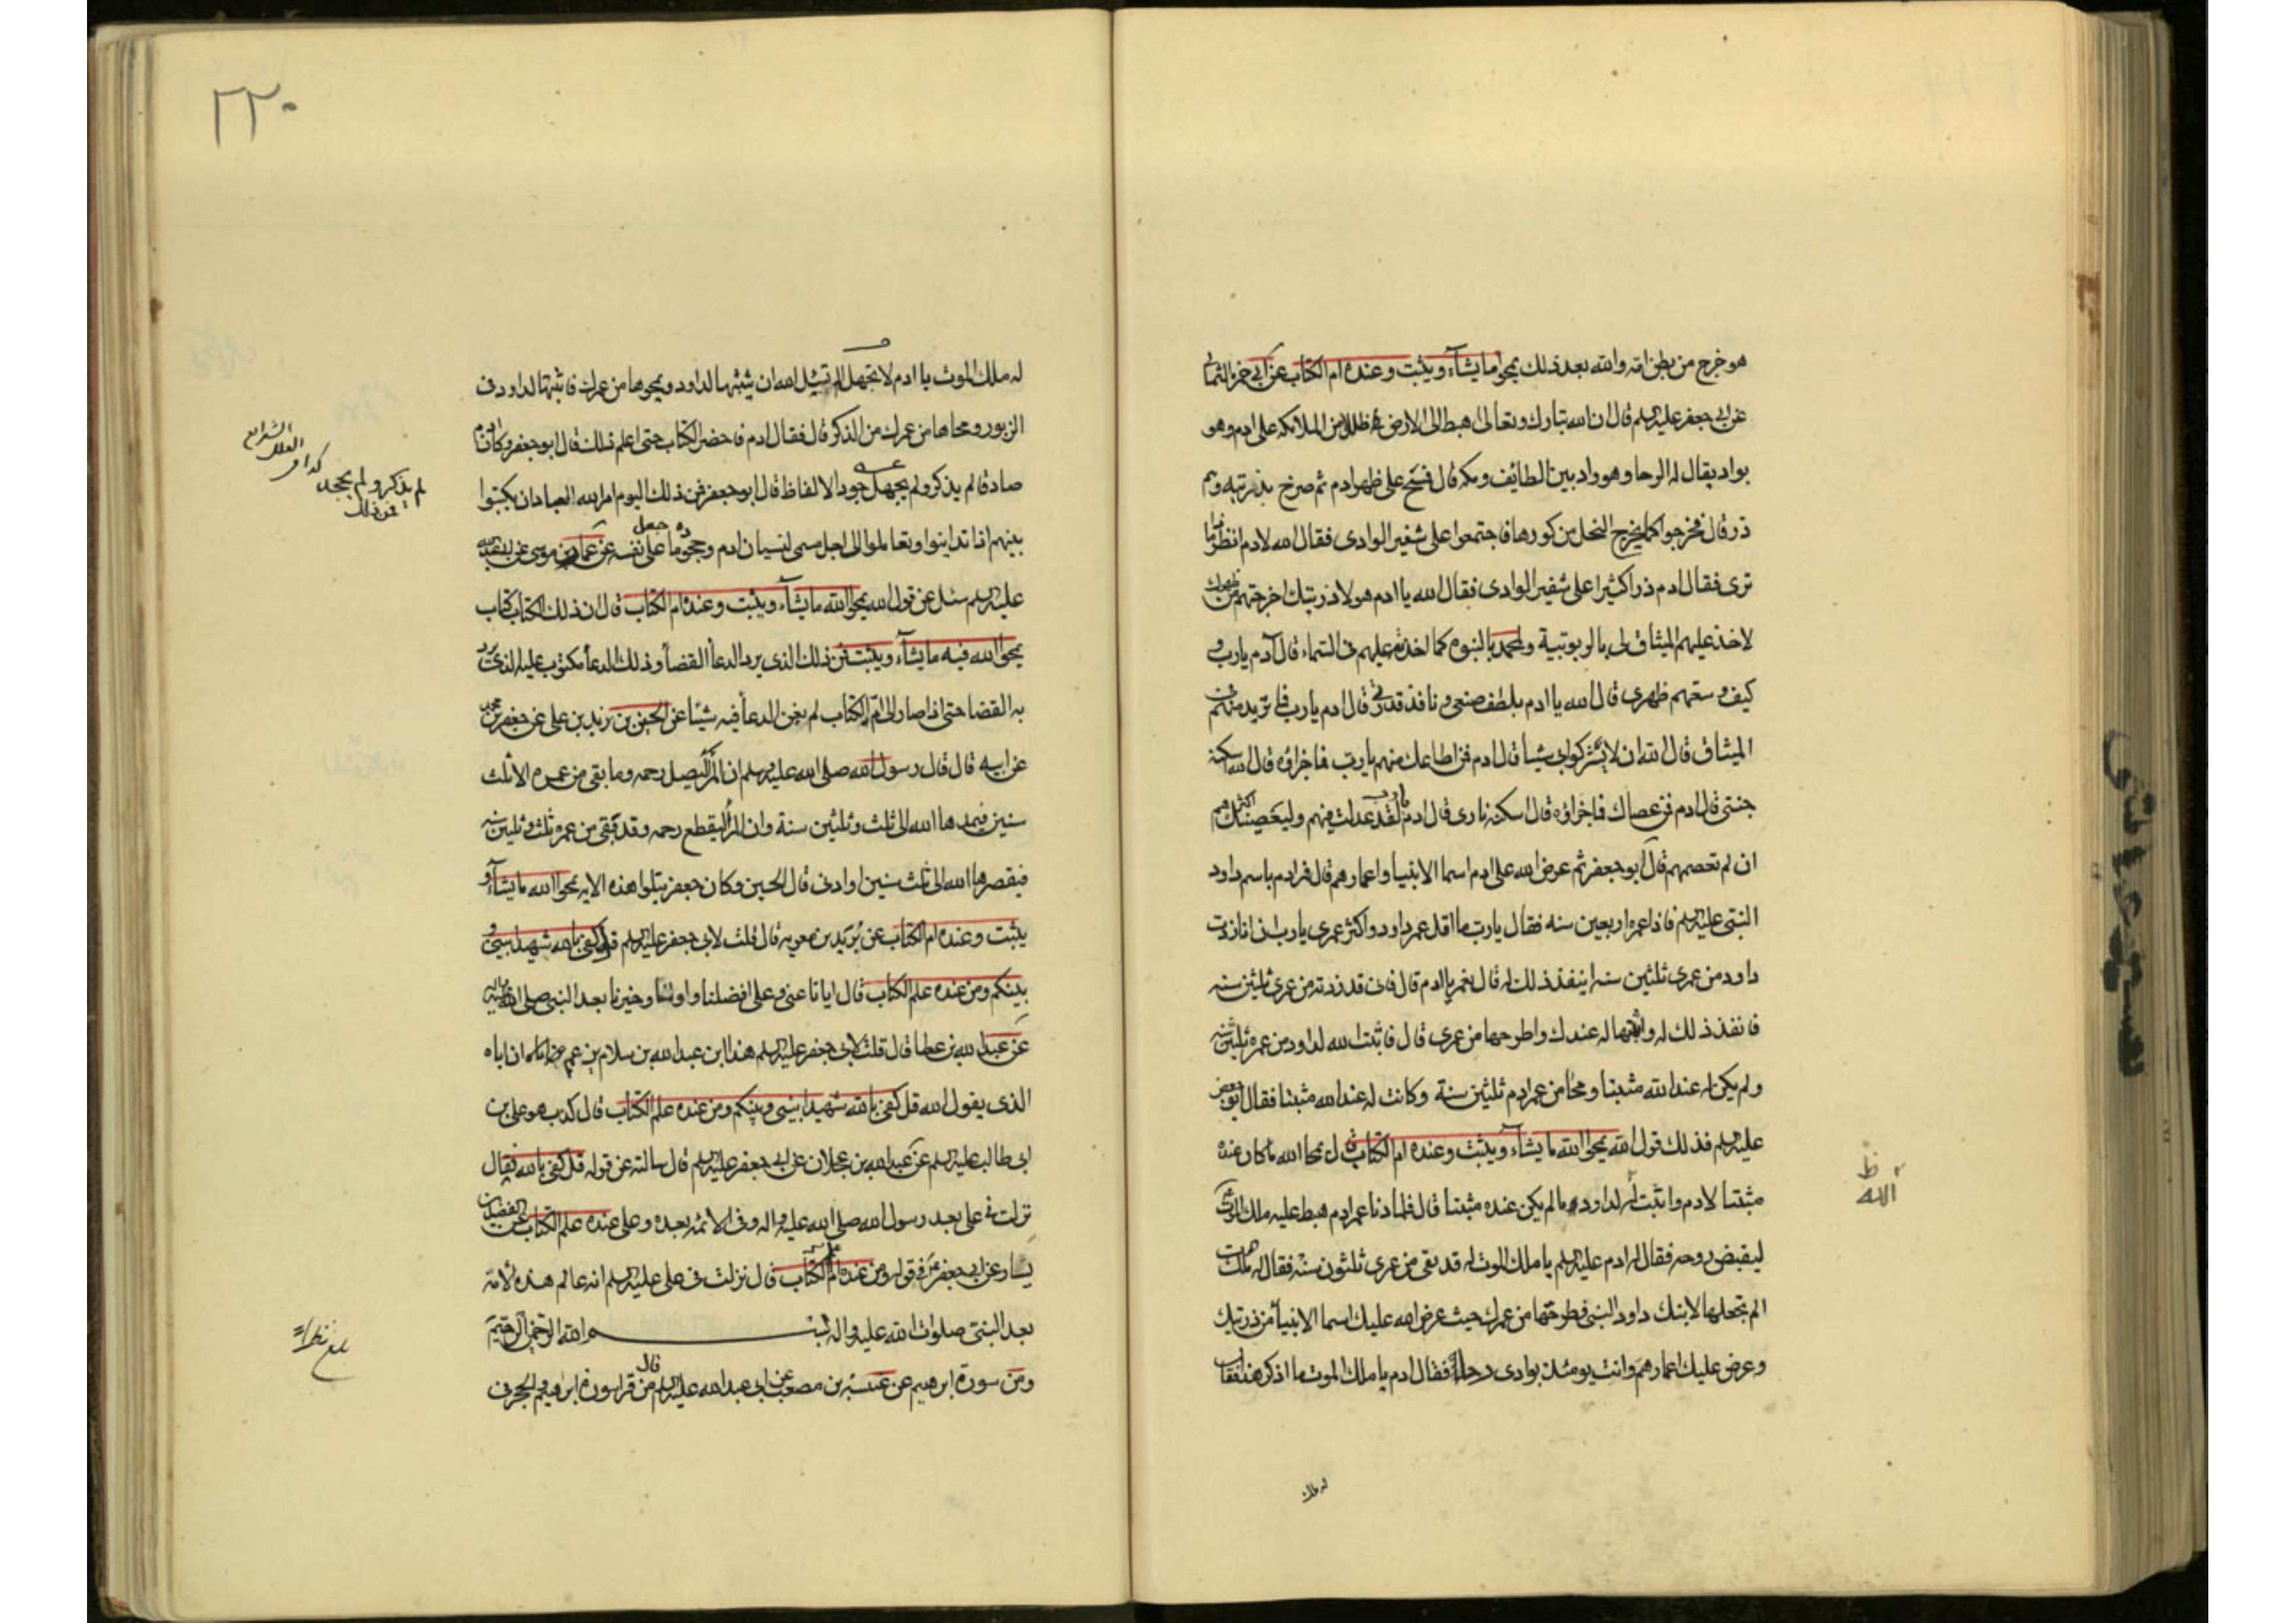 هو خرج من بطن امه والله بعد ذلك يمحوا ما يشآء ويثبت وعنده ام الكتاب عن ابي حمزه الثمالي
عن ابي جعفر عليه السلم قال ان الله تبارك وتعالى اهبط الى الارض في ظلل من الملائكه على ادم وهو
بواد يقال له الروحا وهو واد بين الطايف ومكه قال فمسح على ظهر ادم ثم صرخ بذريته وهم
ذر قال فخرجوا كما يخرج النحل من كورها فاجتمعوا على شفير الوادى فقال الله لادم انظر ماذا
ترى فقال ادم ذرا كثيرا على شفير الوادى فقال الله يا ادم هولا ذريتك اخرجتهم من ظهرك
لاخذ عليهم الميثاق لى بالربوبية ولمحمد بالنبوه كما اخذته عليهم فى السماء قال آدم يا رب و
كيف وسعتهم ظهرى قال الله يا ادم بلطف صنعى و نافذ قدرتى قال ادم يا رب فما تريد منهم فى
الميثاق قال الله ان لا يشركوا بى شيئا قال ادم فمن اطاعك منهم يا رب فما جزاؤه قال الله اسكنه
جنتى قال ادم فمن عصاك فما جزاؤه قال اسكنه نارى قال ادم يا رب لقد عدلت فيهم وليعصينك اكثرهم
ان لم تعصمهم قال ابو جعفر ثم عرض الله على ادم اسما الانبيا واعمارهم قال فمر ادم باسم داود
النبى عليه السلم فاذا عمره اربعين سنه فقال يا رب ما اقل عمر داود واكثر عمرى يا رب ان انا زدت
داود من عمرى ثلثين سنه اينفذ ذلك له قال نعم يا ادم قال فانى قد زدته من عمرى ثلثين سنه
فانفذ ذلك له واثبتها له عندك واطرحها من عمرى قال فاثبت الله لداود من عمره ثلثين سنه
ولم يكن له عند الله مثبتا ومحا من عمر ادم ثلثين سنة وكانت له عند الله مثبتا فقال ابو جعفر
عليه السلم فذلك قول الله يمحوا الله ما يشآء ويثبت وعنده ام الكتاب قال محا الله ما كان عنده
مثبتا لادم واثبت لداود ما لم يكن عنده مثبتا قال فلما دنا عمر ادم هبط عليه ملك الموت
ليقبض روحه فقال له ادم عليه السلم يا ملك الموت قد بقى من عمرى ثلثون سنه فقال له ملك الموت
الم تجعلها لابنك داود النبى وطرحتها من عمرك حيث عرض الله عليك اسما الانبيا من ذريتك
وعرض عليك اعمارهم وانت يومئذ بوادى دحنا فقال ادم يا ملك الموت ما اذكر هذا فقال
ظ
الله
له ملك
٢٢٠
له ملك الموت يا ادم لا تجهل الم تسئل الله ان يثبتها لداود ويمحوها من عمرك فاثبتها لداود فى
الزبور ومحاها من عمرك من الذكر قال فقال ادم فاحضر الكتاب حتى اعلم ذلك قال ابو جعفر وكان ادم
صادقا لم يذكر ولم يجهل جحود الالفاظ قال ابو جعفر فمن ذلك اليوم امر الله العباد ان يكتبوا
بينهم اذا تداينوا وتعاملوا الى اجل مسمى لنسيان ادم وجحوده ما جعل على نفسه عن عمار بن موسى عن ابى عبد الله
عليه السلم سئل عن قول الله يمحوا الله ما يشآء ويثبت وعنده ام الكتاب قال ان ذلك الكتاب كتاب
يمحوا الله فيه ما يشآء ويثبت فمن ذلك الذى يرد الدعا القضا وذلك الدعا مكتوب عليه الذى يرد
به القضا حتى اذا صار الى ام الكتاب لم يغن الدعا فيه شيئا عن الحسين بن زيد بن على عن جعفر بن محمد
عن ابيه قال قال رسول الله صلى الله عليه وسلم ان المرء ليصل رحمه وما بقى من عمره الا ثلث
سنين فيمدها الله الى ثلث وثلثين سنة وان المرء ليقطع رحمه وقد بقى من عمره ثلث وثلثين سنه
فيقصرها الله الى ثلث سنين او ادنى قال الحسين وكان جعفر يتلوا هذه الايه يمحوا الله ما يشآء و
يثبت وعنده ام الكتاب عن بريد بن معويه قال قلت لابى جعفر عليه السلم قل كفى بالله شهيدا بينى و
بينكم ومن عنده علم الكتاب قال ايانا عنى وعلى افضلنا واولنا وخيرنا بعد النبى صلى الله عليه واله
عن عبد الله بن عطا قال قلت لابى جعفر عليه السلم هذا ابن عبد الله بن سلام بن عمر ان اباه
الذى يقول الله قل كفى بالله شهيدا بينى وبينكم ومن عنده علم الكتاب قال كذب هو على بن
ابى طالب عليه السلم عن عبد الله بن عجلان عن ابى جعفر عليه السلم قال سالته عن قوله قل كفى بالله فقال
نزلت فى على بعد رسول الله صلى الله عليه واله وفى الائمه بعده وعلى عنده علم الكتاب عن الفضيل بن
يسار عن ابى جعفر فى قوله ومن عنده علم الكتاب قال نزلت فى على عليه السلم انه عالم هذه الامه
بعد النبى صلوات الله عليه واله بسم الله الرحمن الرحيم
ومن سورة ابرهيم عن عنبسه بن مصعب عن ابى عبد الله عليه السلم قال من قرا سورة ابرهيم والحجر فى
لم يذكر ولم يجحد
فمن ذلك
كذا فى
العلل